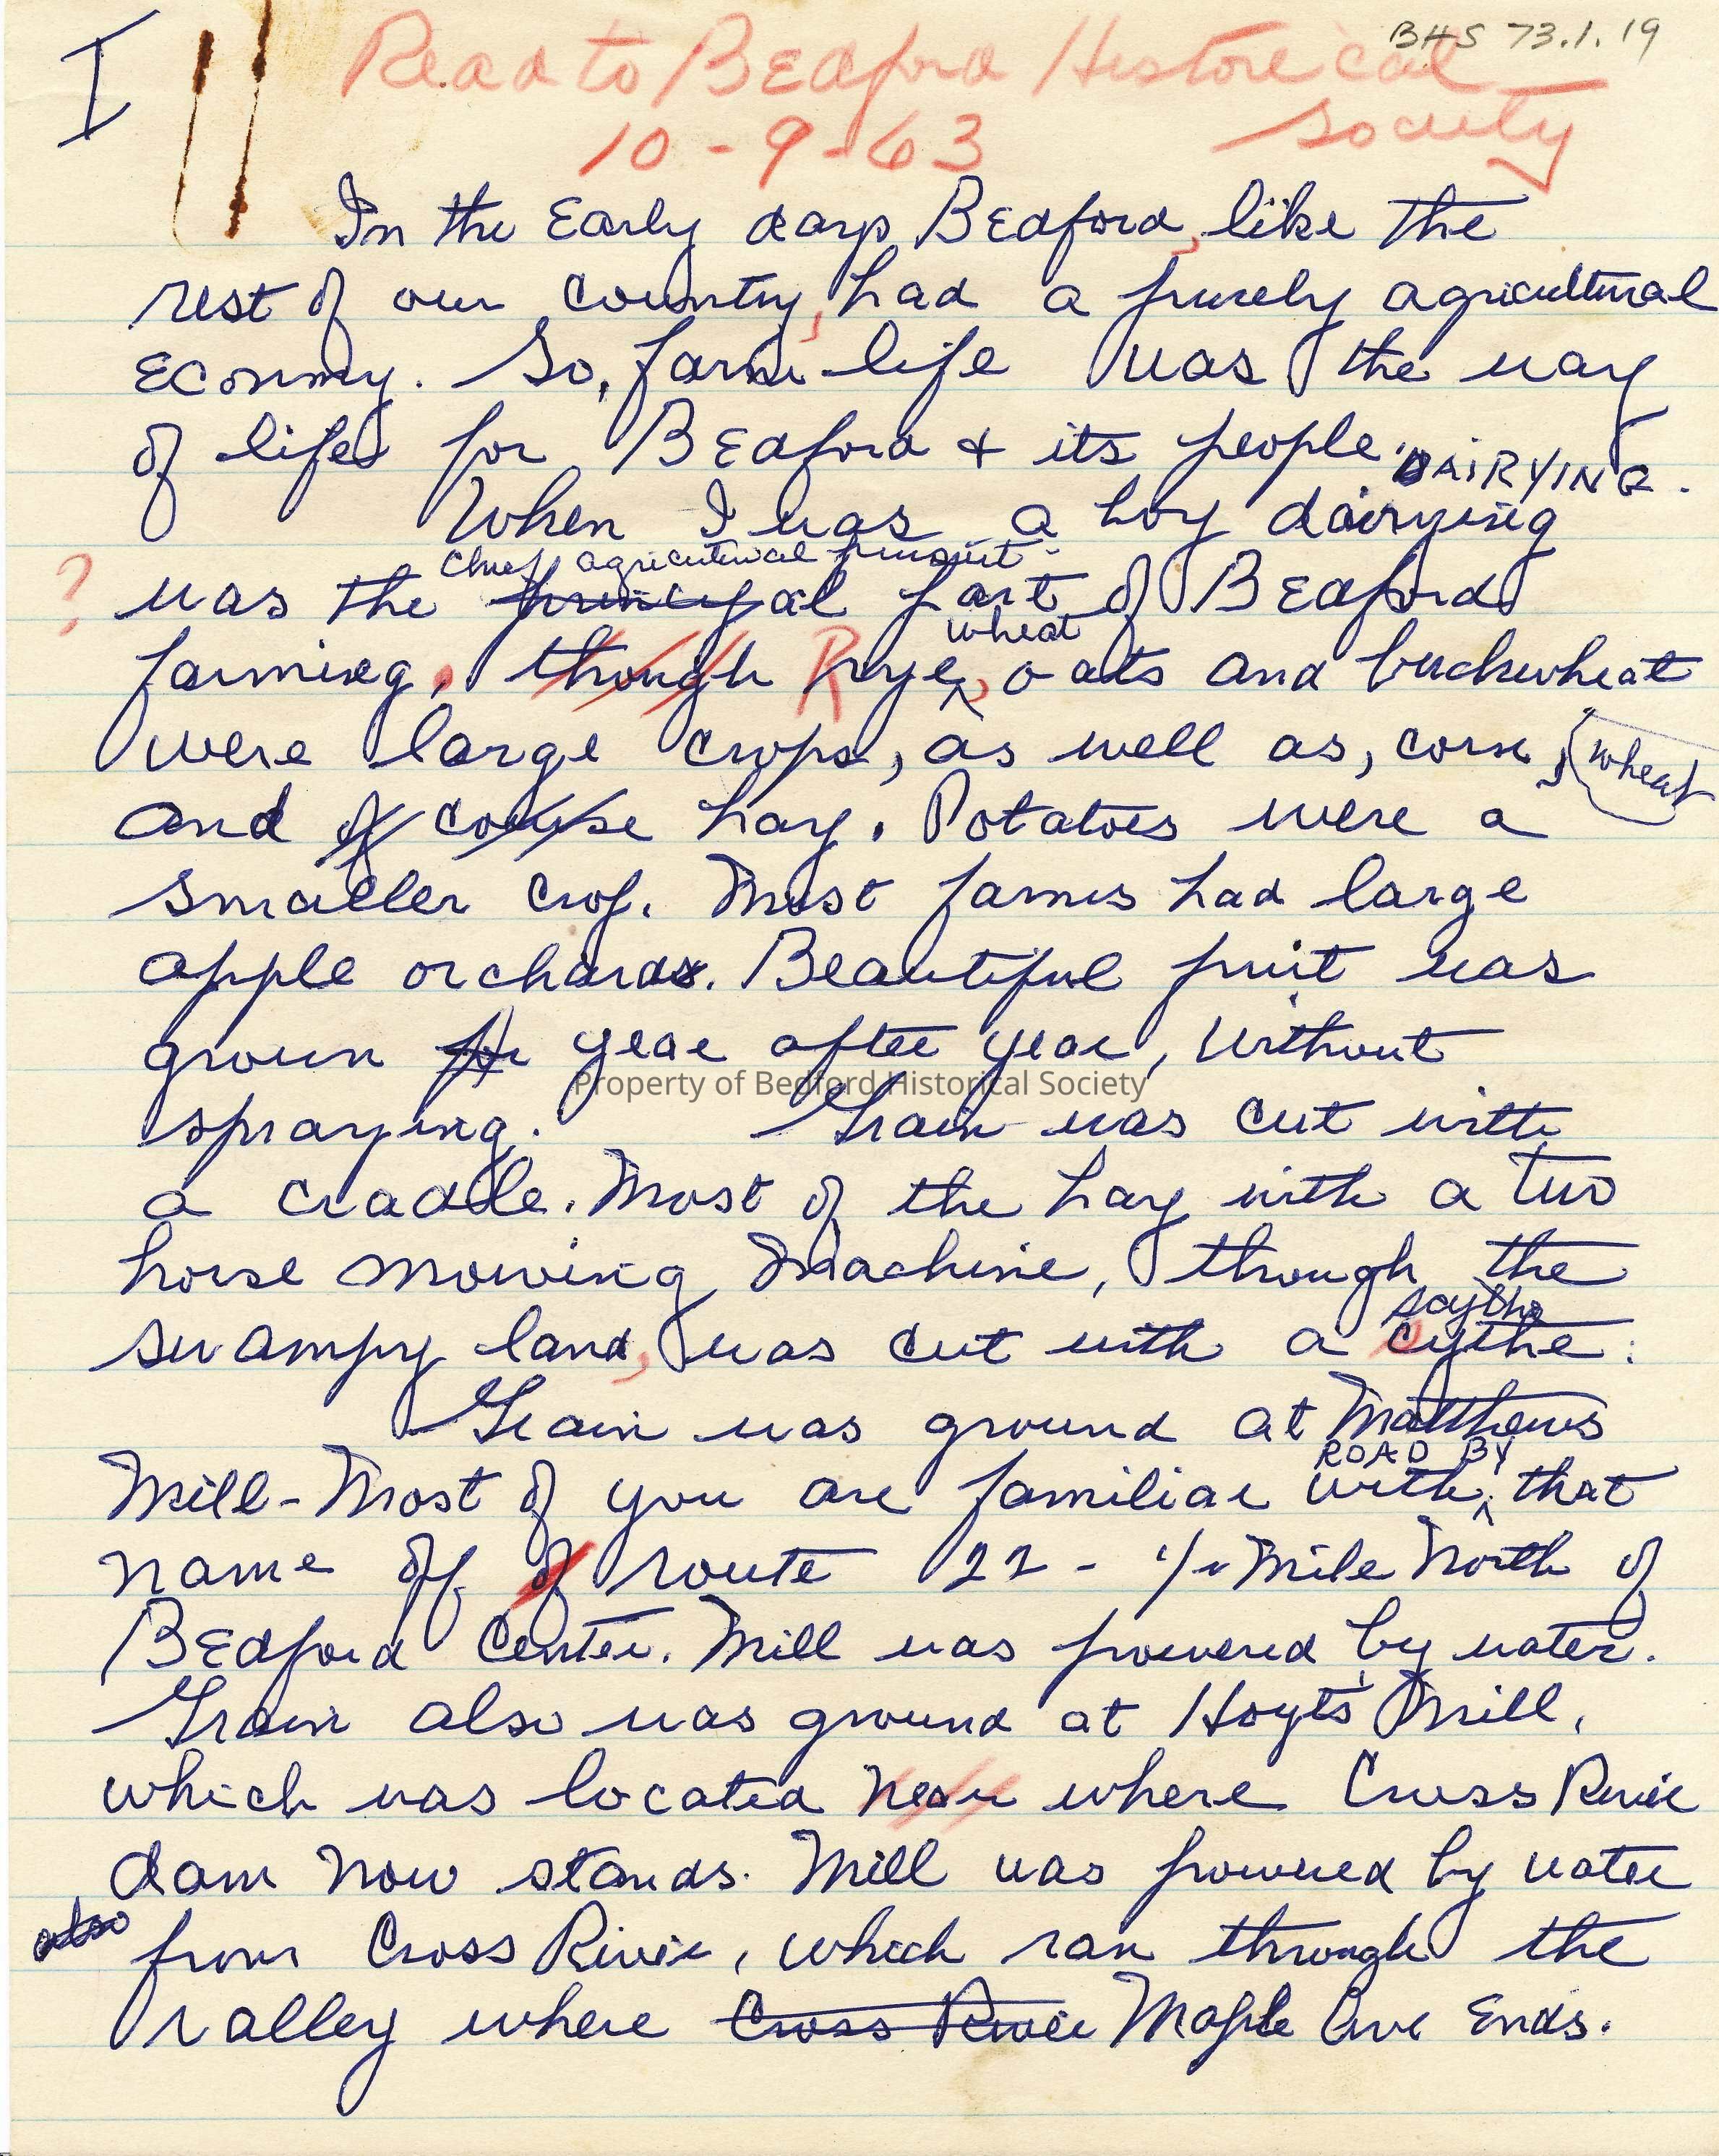 I
BHS 73.1.19
Read to Bedford Historical
Society
10-9-63
In the Early days Bedford, like the
rest of our country, had a purely agricultural
Econmy. So, farm life was the way
of life for Bedford & its people.
DAIRYING.
When I was a boy dairying
chief agricultural pursuit.
? was the principal part of Bedford
wheat
farming. though Rye, oats and buckwheat
were large crops, as well as, corn, (wheat
and of course hay. Potatoes were a
smaller crop. Most farms had large
apple orchards. Beautiful fruit was
grown year after year, without
Property of Bedford Historical Society
spraying. Grain was cut with
a cradle. Most of the hay with a two
horse mowing Machine, though the
scythe
swampy land, was cut with a cythe.
Grain was ground at Matthews
ROAD BY
Mill - Most of you are familiar with that
name off of route 22 - 1/2 Mile North of
Bedford Center. Mill was powered by water.
Grain also was ground at Hoyts Mill,
which was located near where Cross River
dam now stands. Mill was powered by water
also
from Cross River, which ran through the
valley where Cross River Maple Ave Ends.